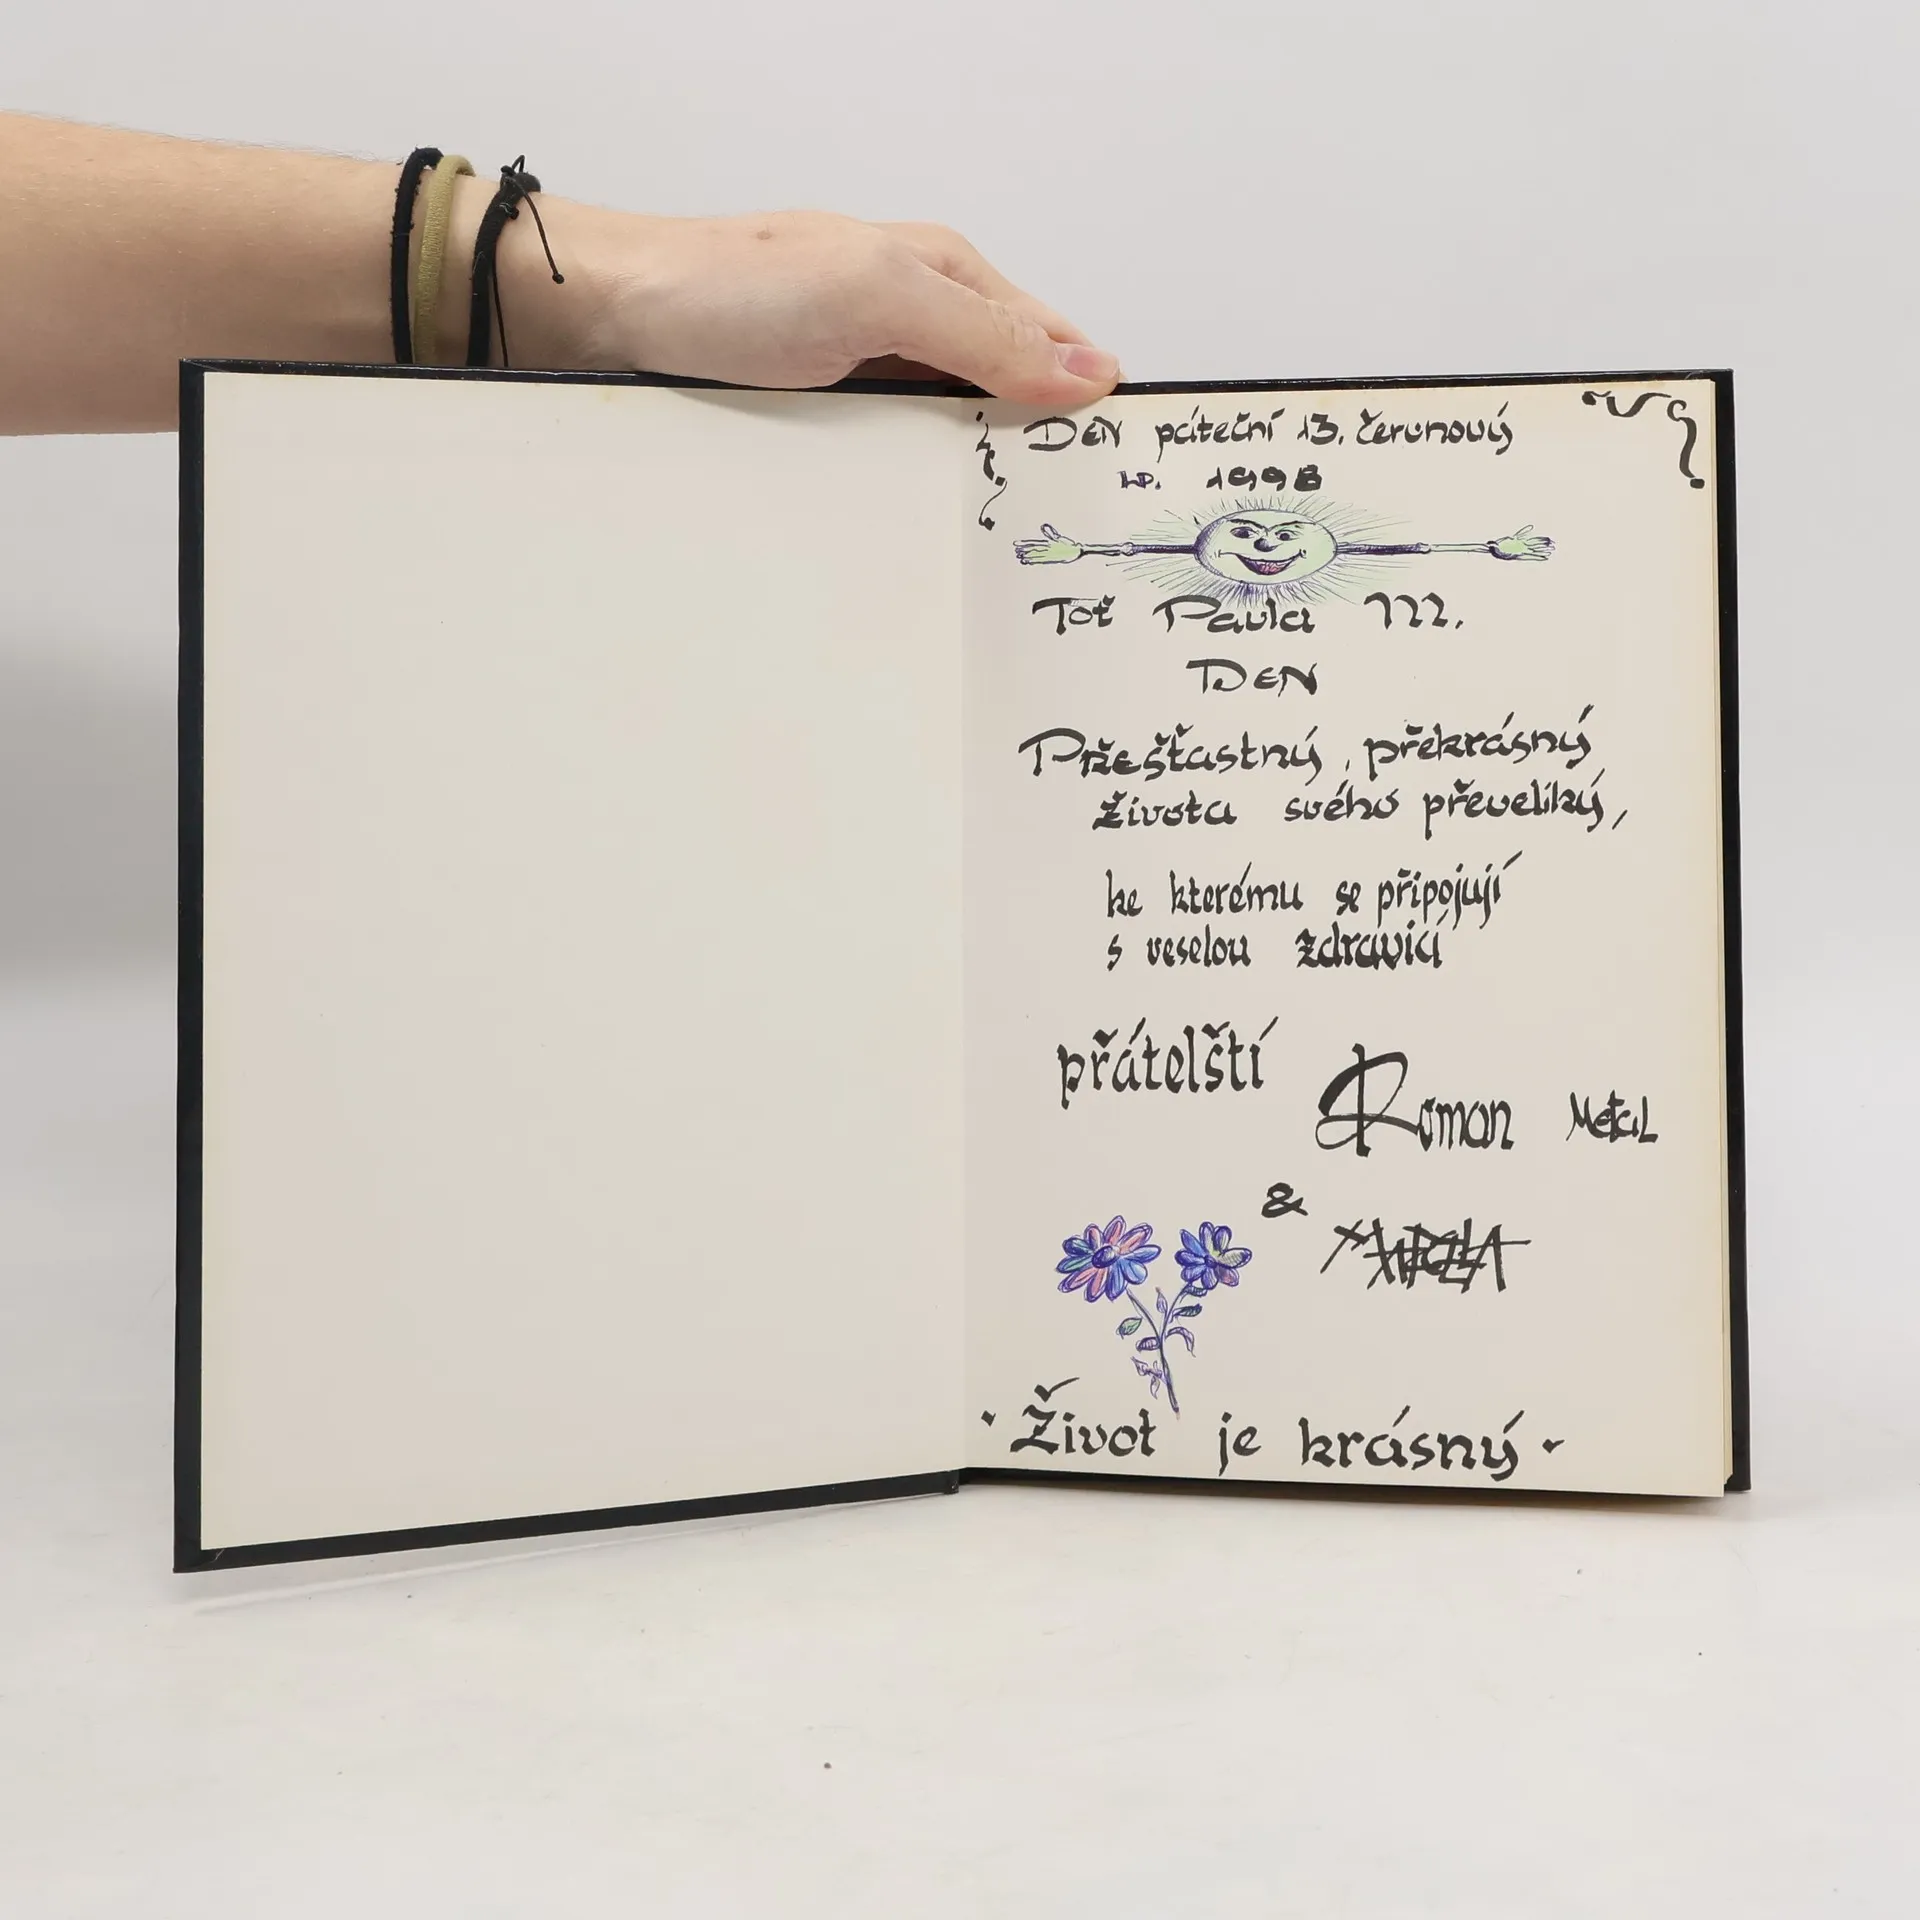 Den páteční 13. červnový
LP. 1998
Toť Pavla M.
DEN
Přešťastný, překrásný
života svého převeliký,
ke kterému se připojují
s veselou zdravicí
přátelští
Roman Metal
&
Život je krásný